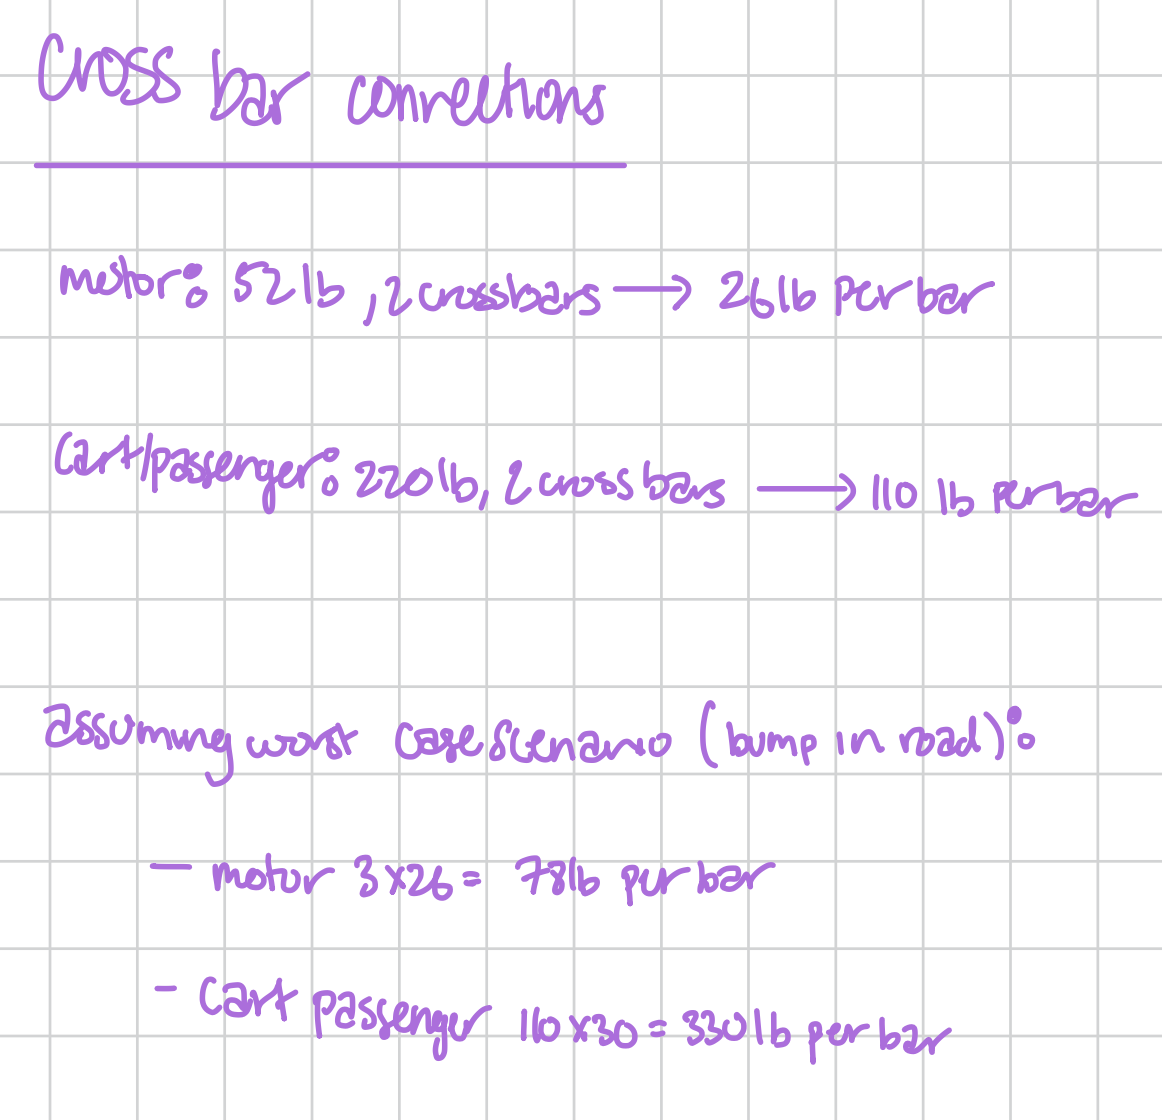 Cross bar connections
motor: 52 lb, 2 crossbars → 26 lb per bar
Cart/passenger: 220 lb, 2 cross bars → 110 lb per bar
assuming worst case scenario (bump in road):
- motor 3x26 = 78 lb per bar
- Cart passenger 110 x 30 = 330 lb per bar